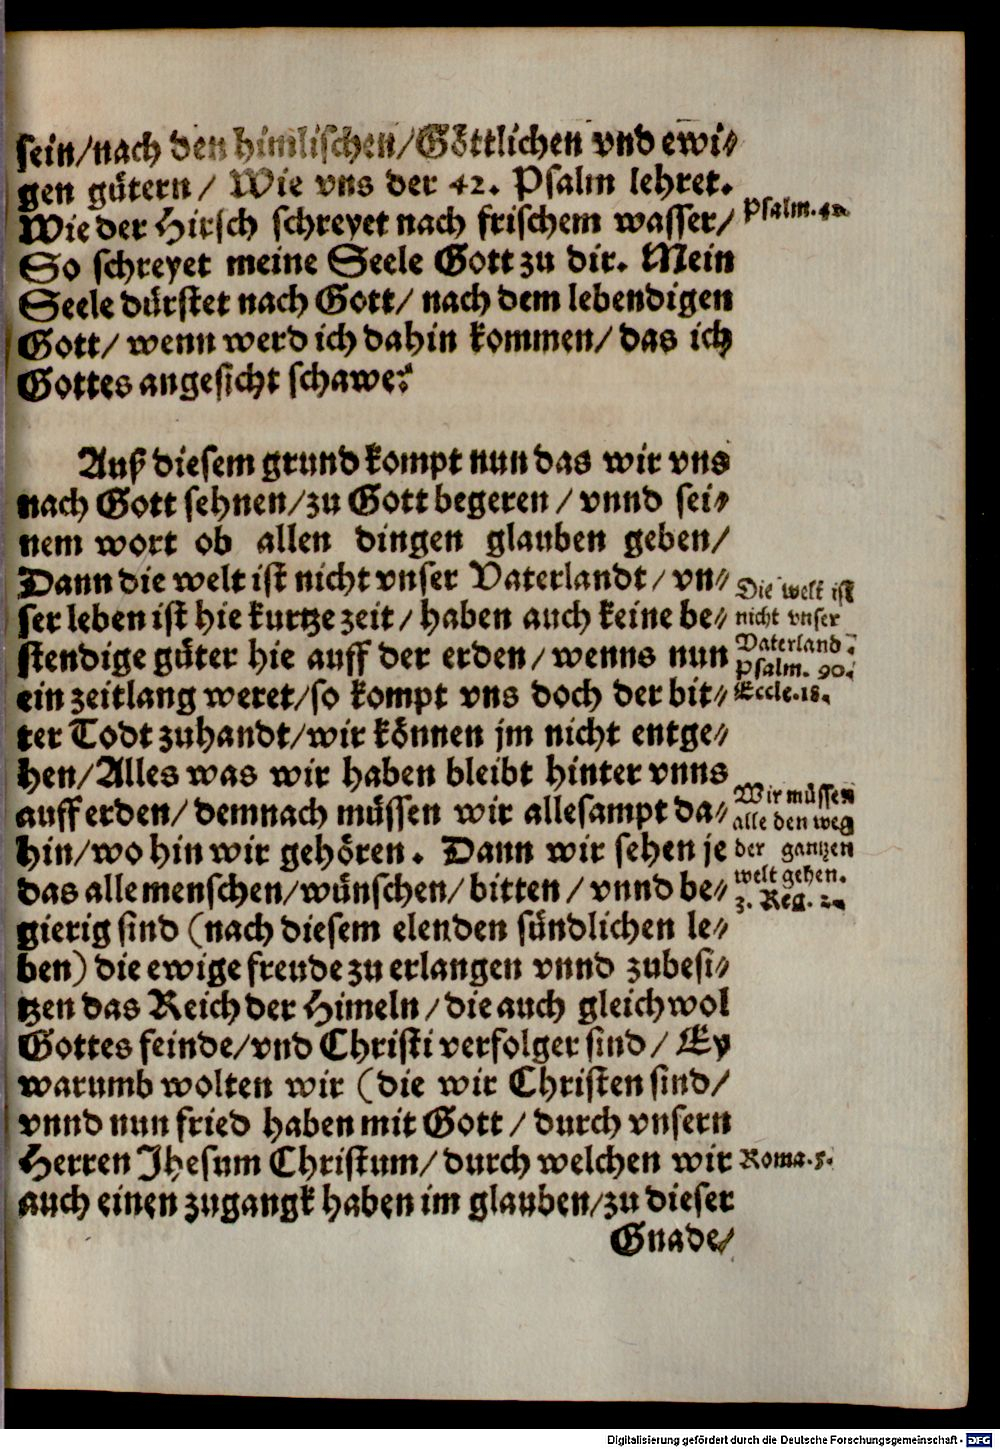 sein/nach den himlischen/Göttlichen vnd ewi⸗
gen gütern/ Wie vns der 42. Psalm lehret.
Wie der Hirsch schreyet nach frischem wasser/
Psalm. 42.
So schreyet meine Seele Gott zu dir. Mein
Seele dürstet nach Gott/ nach dem lebendigen
Gott/ wenn werd ich dahin kommen/ das ich
Gottes angesicht schawe?
Auß diesem grund kompt nun das wir vns
nach Gott sehnen/zu Gott begeren/ vnnd sei⸗
nem wort ob allen dingen glauben geben/
Dann die welt ist nicht vnser Vaterlandt/ vn⸗
ser leben ist hie kurtze zeit/ haben auch keine be⸗
stendige güter hie auff der erden/ wenns nun
ein zeitlang weret/so kompt vns doch der bit⸗
Die welt ist
nicht vnser
Vaterland.
Psalm. 90.
Eccle.18.
ter Todt zuhandt/wir können jm nicht entge⸗
hen/Alles was wir haben bleibt hinter vnns
auff erden/ demnach müssen wir allesampt da⸗
hin/wo hin wir gehören. Dann wir sehen je
das alle menschen/wünschen/ bitten/ vnnd be⸗
Wir müssen
alle den weg
der gantzen
welt gehen.
3. Reg. 2.
gierig sind (nach diesem elenden sündlichen le⸗
ben) die ewige freude zu erlangen vnnd zubesi⸗
tzen das Reich der Himeln/die auch gleichwol
Gottes feinde/vnd Christi verfolger sind/ Ey
warumb wolten wir (die wir Christen sind/
vnnd nun fried haben mit Gott/ durch vnsern
Herren Jhesum Christum/ durch welchen wir
Roma.5.
auch einen zugangk haben im glauben/zu dieser
Gnade/
Digitalisierung gefördert durch die Deutsche Forschungsgemeinschaft - DFG